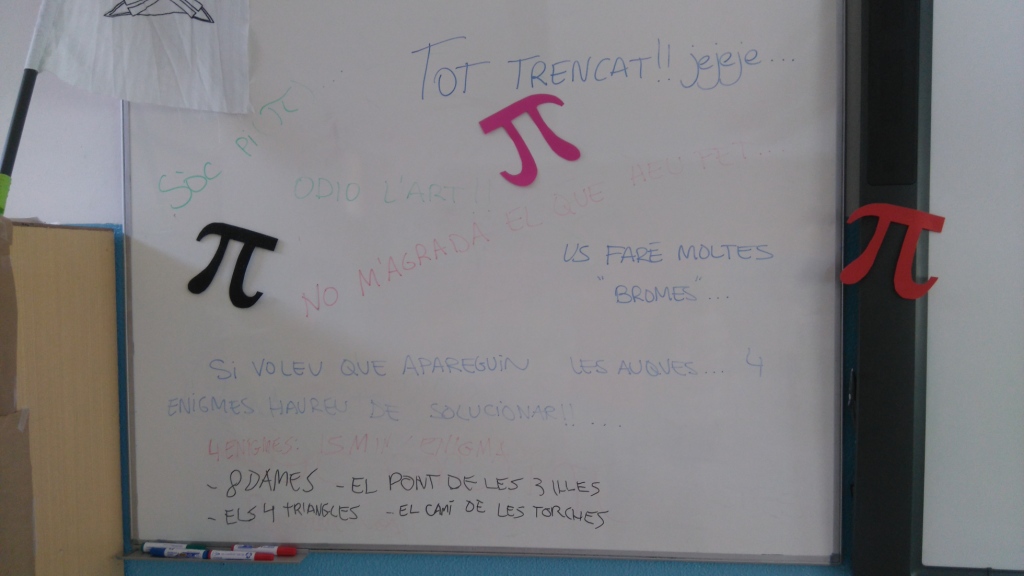 TOT TRENCAT!! jejeje...
SÓC PI (π)...
ODIO L'ART!!
NO M'AGRADA EL QUE HEU FET...
US FARÉ MOLTES
"BROMES"...
SI VOLEU QUE APAREGUIN LES AUQUES... 4
ENIGMES HAUREU DE SOLUCIONAR!!...
4 ENIGMES:
- 8 DAMES - EL PONT DE LES 3 ILLES
- ELS 4 TRIANGLES - EL CAMÍ DE LES TORCHES
π
π
π